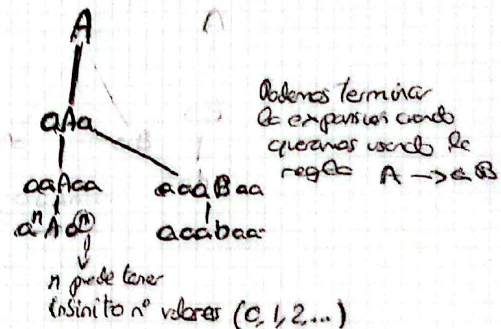 A
aAa
aaAaa
aaaBaa
aⁿAaⁿ
aaabaa
n puede tener
infinito nº valores (0, 1, 2, ...)
Podemos terminar
la expansión cuando
queramos usando la
regla A → aB